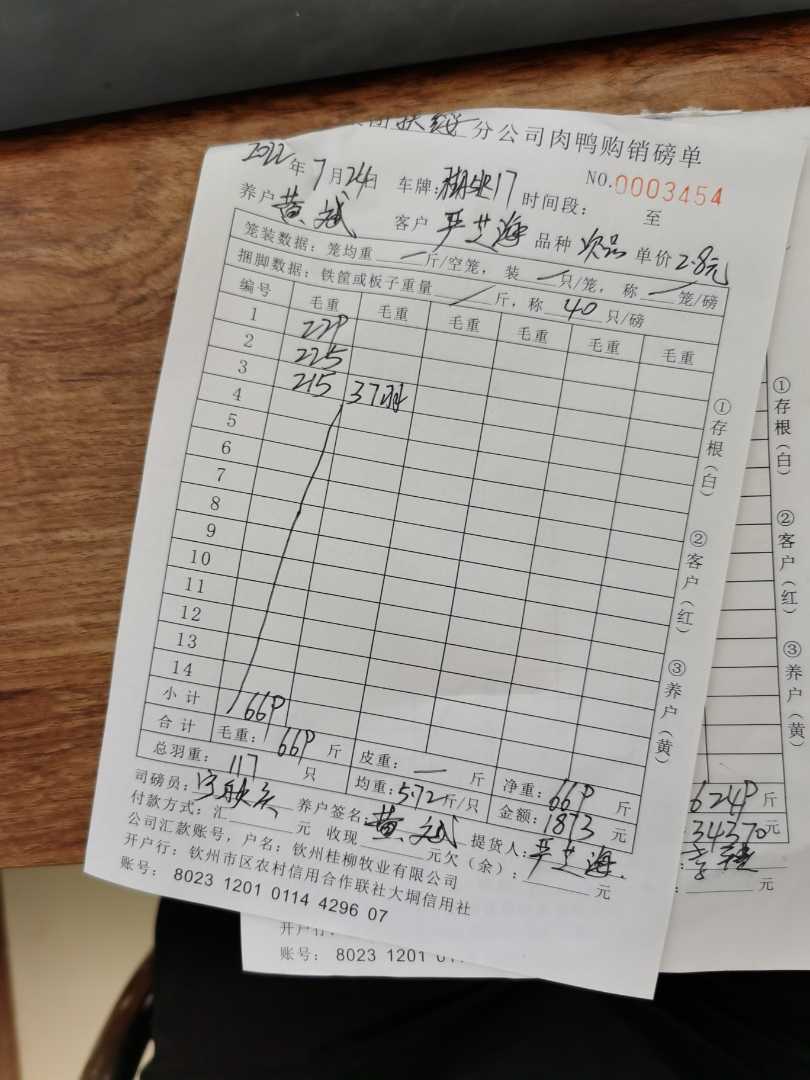 分公司肉鸭购销磅单
2022年7月24日 车牌: 17 时间段: 至 NO.0003454
养户 黄斌 客户 严芝海 品种 次品 单价 2.8元
笼装数据:笼均重 一 斤/空笼,装 一 只/笼,称 一 笼/磅
捆脚数据:铁筐或板子重量 / 斤,称 40 只/磅
编号 毛重 毛重 毛重 毛重 毛重 毛重
1 229
2 225
3 215 37羽
4
5
6
7
8
9
10
11
12
13
14
小计 669
合计 毛重: 669 斤 皮重: 一 斤 净重: 669 斤
总羽重: 117 只 均重: 5.72斤/只 金额: 1873 元
司磅员: 养户签名: 黄斌 提货人: 严芝海
付款方式:汇 元 收现 元欠(余): 元
公司汇款账号,户名:钦州桂柳牧业有限公司
开户行:钦州市区农村信用合作联社大垌信用社
账号: 8023 1201 0114 4296 07
①存根(白) ②客户(红) ③养户(黄)
①存根(白) ②客户(红) ③养户(黄)
6249 斤
34370元
元
开户行:
账号: 8023 1201 011